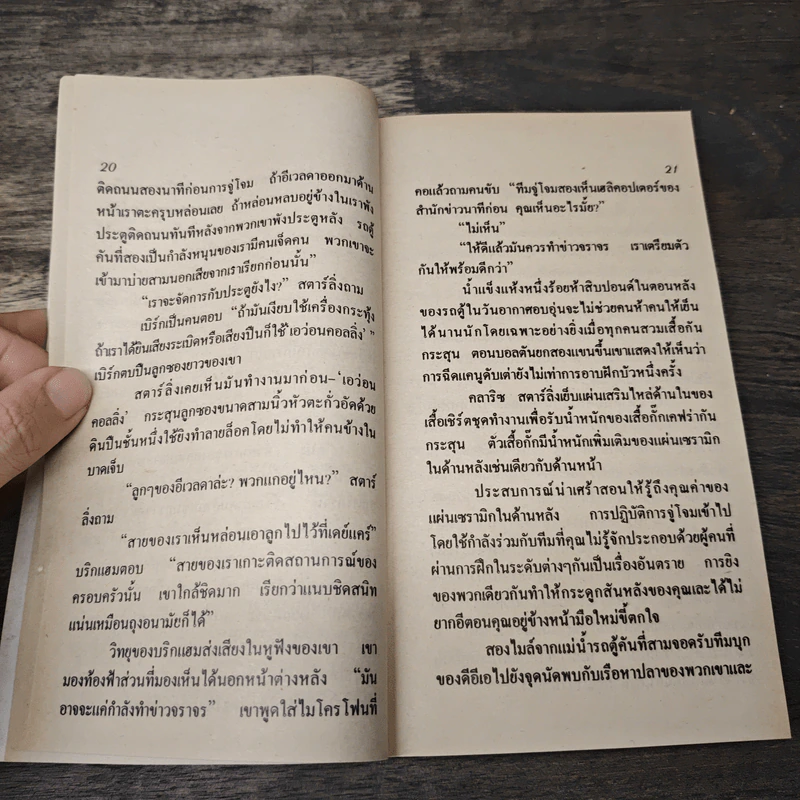 20
ติดถนนสองนาทีก่อนการจู่โจม ถ้าอีเวลดาออกมาด้าน
หน้าเราตะครุบหล่อนเลย ถ้าหล่อนหลบอยู่ข้างในเราพัง
ประตูติดถนนทันทีหลังจากพวกเขาพังประตูหลัง รถตู้
คันที่สองเป็นกำลังหนุนของเรามีคนเจ็ดคน พวกเขาจะ
เข้ามาบ่ายสามนอกเสียจากเราเรียกก่อนนั้น”
“เราจะจัดการกับประตูยังไง?” สตาร์ลิ่งถาม
เบิร์กเป็นคนตอบ “ถ้ามันเงียบใช้เครื่องกระทุ้ง
ถ้าเราได้ยินเสียงระเบิดหรือเสียงปืนก็ใช้‘เอว่อนคอลลิ่ง’ ”
เบิร์กตบปืนลูกซองยาวของเขา
สตาร์ลิ่งเคยเห็นมันทำงานมาก่อน–‘เอว่อน
คอลลิ่ง’ กระสุนลูกซองขนาดสามนิ้วหัวตะกั่วอัดด้วย
ดินปืนชั้นหนึ่งใช้ยิงทำลายล็อคโดยไม่ทำให้คนข้างใน
บาดเจ็บ
“ลูกๆของอีเวลดาล่ะ? พวกแกอยู่ไหน?” สตาร์
ลิ่งถาม
“สายของเราเห็นหล่อนเอาลูกไปไว้ที่เดย์แคร์”
บริกแฮมตอบ “สายของเราเกาะติดสถานการณ์ของ
ครอบครัวนั้น เขาใกล้ชิดมาก เรียกว่าแนบชิดสนิท
แน่นเหมือนถุงอนามัยก็ได้”
วิทยุของบริกแฮมส่งเสียงในหูฟังของเขา เขา
มองท้องฟ้าส่วนที่มองเห็นได้นอกหน้าต่างหลัง “มัน
อาจจะแค่กำลังทำข่าวจราจร” เขาพูดใส่ไมโครโฟนที่
21
คอแล้วถามคนขับ “ทีมจู่โจมสองเห็นเฮลิคอปเตอร์ของ
สำนักข่าวนาทีก่อน คุณเห็นอะไรมั้ย?”
“ไม่เห็น”
“ให้ดีแล้วมันควรทำข่าวจราจร เราเตรียมตัว
กันให้พร้อมดีกว่า”
น้ำแข็งแห้งหนึ่งร้อยห้าสิบปอนด์ในตอนหลัง
ของรถตู้ในวันอากาศอบอุ่นจะไม่ช่วยคนห้าคนให้เย็น
ได้นานนักโดยเฉพาะอย่างยิ่งเมื่อทุกคนสวมเสื้อกัน
กระสุน ตอนบอลตันยกสองแขนขึ้นเขาแสดงให้เห็นว่า
การฉีดแคนูดับเต่ายังไม่เท่าการอาบฝักบัวหนึ่งครั้ง
คลาริซ สตาร์ลิ่งเย็บแผ่นเสริมไหล่ด้านในของ
เสื้อเชิร์ตชุดทำงานเพื่อรับน้ำหนักของเสื้อกั๊กเคฟร่ากัน
กระสุน ตัวเสื้อกั๊กมีน้ำหนักเพิ่มเติมของแผ่นเซรามิก
ในด้านหลังเช่นเดียวกับด้านหน้า
ประสบการณ์น่าเศร้าสอนให้รู้ถึงคุณค่าของ
แผ่นเซรามิกในด้านหลัง การปฏิบัติการจู่โจมเข้าไป
โดยใช้กำลังร่วมกับทีมที่คุณไม่รู้จักประกอบด้วยผู้คนที่
ผ่านการฝึกในระดับต่างๆกันเป็นเรื่องอันตราย การยิง
ของพวกเดียวกันทำให้กระดูกสันหลังของคุณเละได้ไม่
ยากอีตอนคุณอยู่ข้างหน้ามือใหม่ขี้ตกใจ
สองไมล์จากแม่น้ำรถตู้คันที่สามจอดรับทีมบุก
ของดีอีเอไปยังจุดนัดพบกับเรือหาปลาของพวกเขาและ